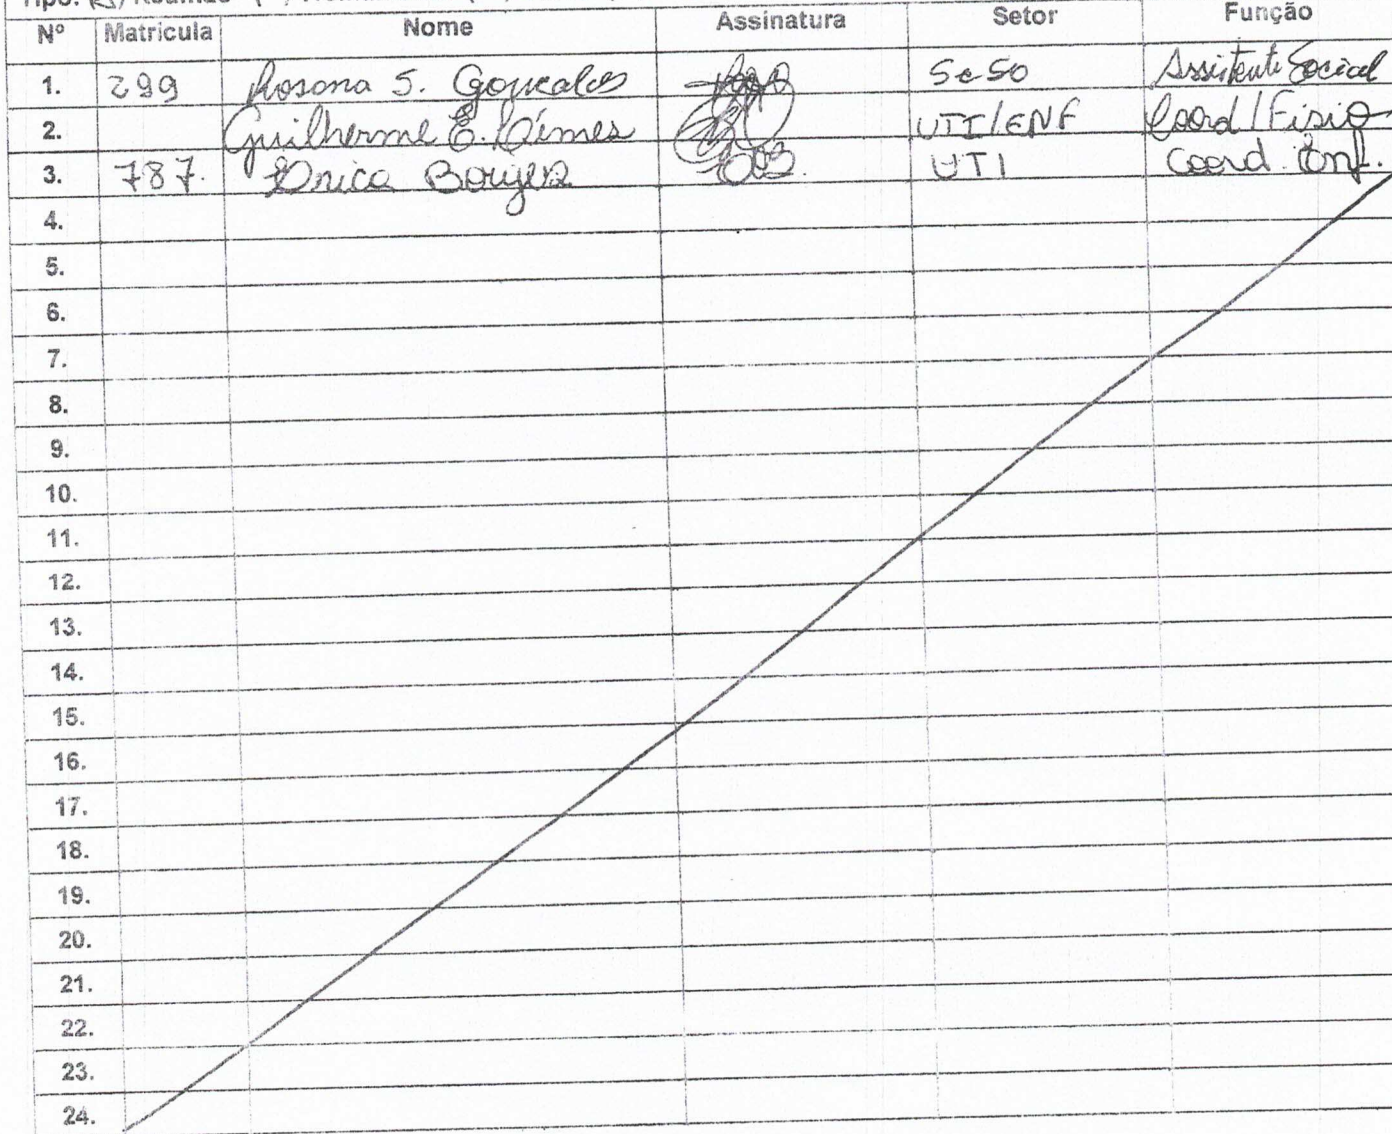 Tipo: Reunião
Nº Matrícula Nome Assinatura Setor Função
1. 299 Rosana S. Gonçalves SeSo Assistente Social
2. Guilherme UTI/ENF Coord/Fisio
3. 787. Erica Borges UTI Coord. Enf.
4.
5.
6.
7.
8.
9.
10.
11.
12.
13.
14.
15.
16.
17.
18.
19.
20.
21.
22.
23.
24.